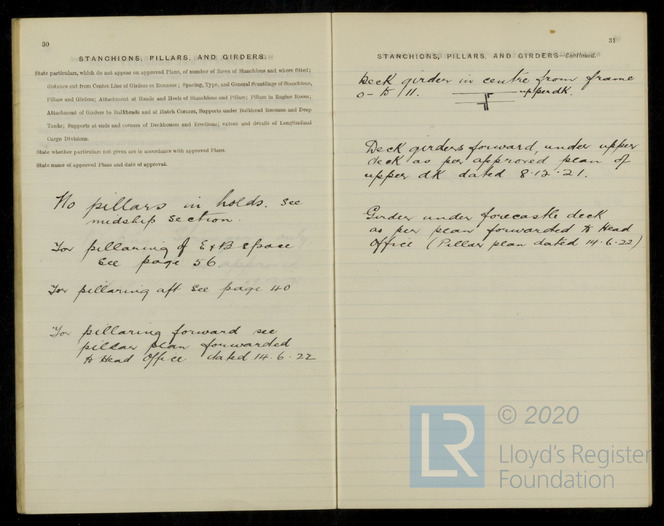 30
STANCHIONS, PILLARS, AND GIRDERS.
State particulars, which do not appear on approved Plans, of number of Rows of Stanchions and where fitted;
distance out from Centre Line of Girders or Runners; Spacing, Type, and General Scantlings of Stanchions,
Pillars and Girders; Attachment at Heads and Heels of Stanchions and Pillars; Pillars in Engine Room;
Attachment of Girders to Bulkheads and at Hatch Corners, Supports under Bulkhead Recesses and Deep
Tanks; Supports at ends and corners of Deckhouses and Erections; extent and details of Longitudinal
Cargo Divisions.
State whether particulars not given are in accordance with approved Plans.
State name of approved Plans and date of approval.
No pillars in holds. See
midship section.
For pillaring of E & B space
See page 56
For pillaring aft see page 40
For pillaring forward see
pillar plan forwarded
to Head Office dated 14.6.22
31
STANCHIONS, PILLARS, AND GIRDERS—Continued.
Deck girder in centre from frame
0 - to 11. upper dk.
Deck girders forward, under upper
deck as per approved plan of
upper dk dated 8.12.21.
Girder under forecastle deck
as per plan forwarded to Head
Office (Pillar plan dated 14.6.22)
LR
© 2020
Lloyd's Register
Foundation